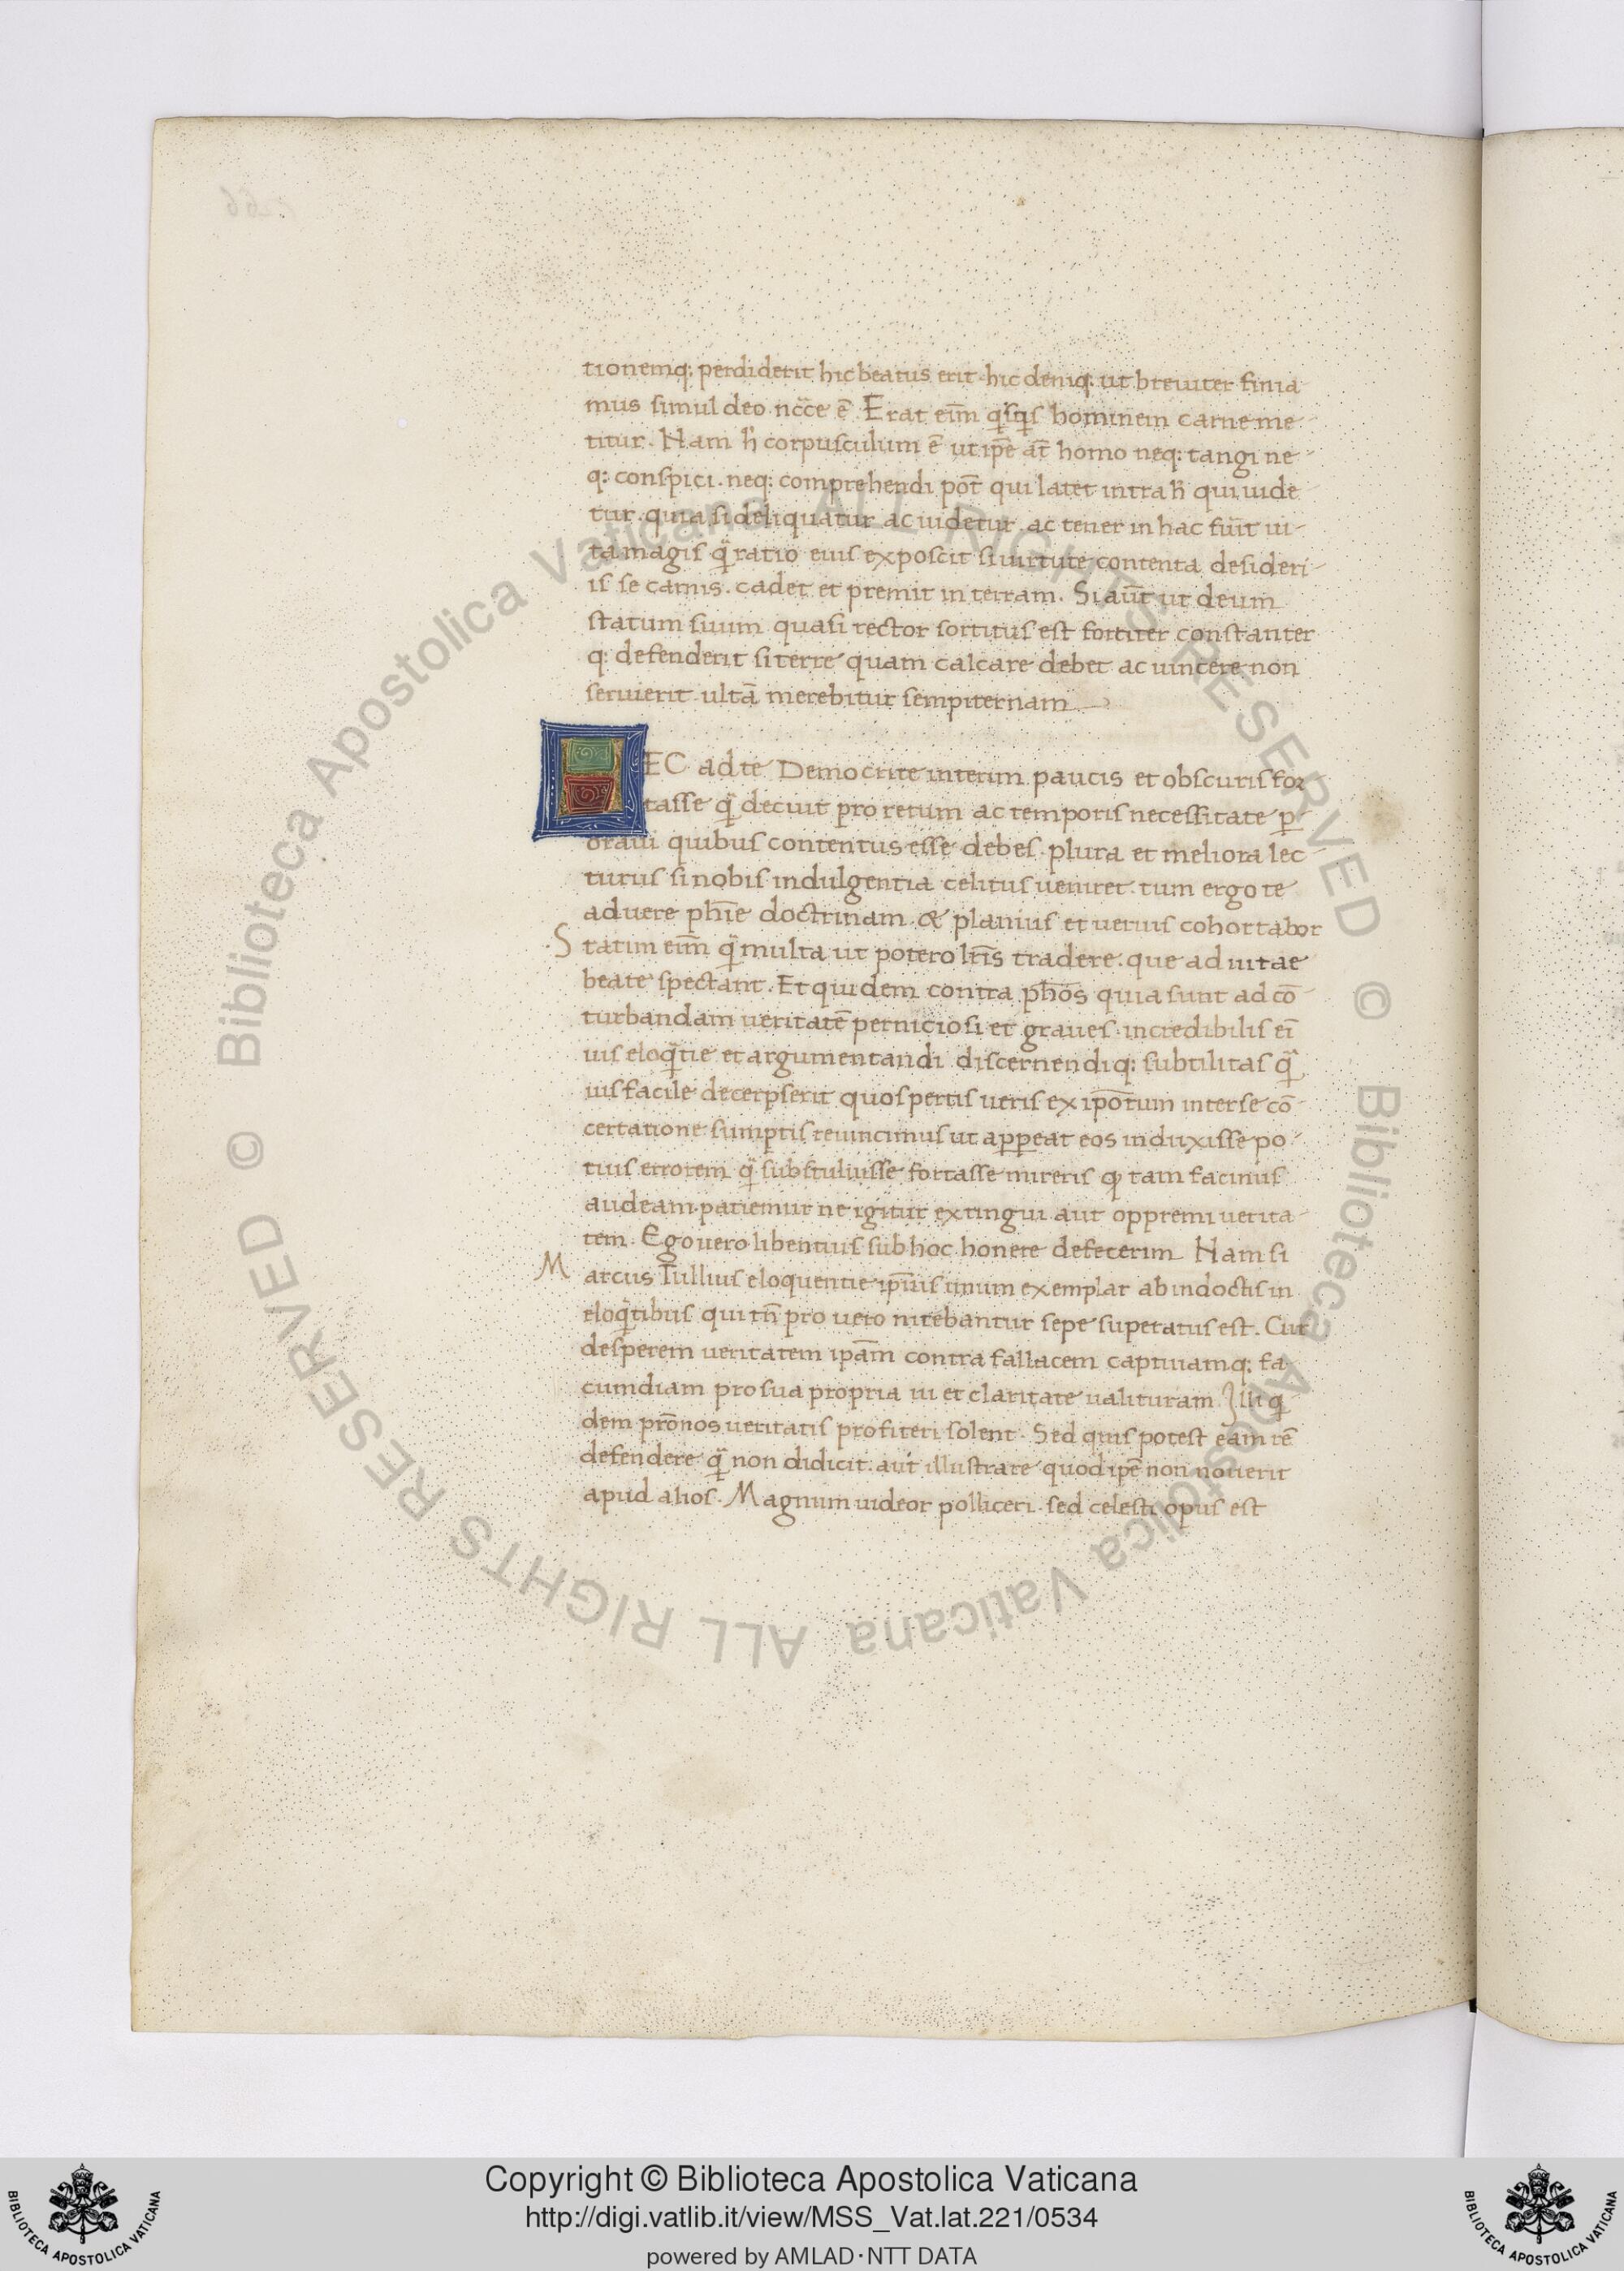 tionemq: perdiderit hic beatus erit hic deniq: ut breuiter finia
mus simul deo nc̄ce ē. Erat eim̄ qͥsqͥs hominem carne me
titur. Nam h̄ corpusculum ē ut ip̄e at̄ homo neq: tangi ne
q: conspici. neq: comprehendi pot̄ qui latet intra h̄ qui uide
tur. quia si deliquatur ac uidetur. ac tener in hac fuīt ui
ta magis q̄ ratio eius exposcit si uirtute contenta desideri
is se carnis. cadet et premit in terram. Si aūt ut deum
statum suum quasi rector sortitus est fortiter constanter
q: defenderit si terre quam calcare debet ac uincere non
seruierit ultā merebitur sempiternam
EC ad te Democrite interim paucis et obscuris for
tasse q̄ decuit pro rerum ac temporis necessitate p̲
oraui quibus contentus esse debes. plura et meliora lec
turus si nobis indulgentia celitus ueniret. tum ergo te
ad uere ph̄ie doctrinam & planius et uerius cohortabor
Statim eim̄ q̄ multa ut potero lr̄īs tradere. que ad uitae
beate spectant. Et quidem contra ph̄os quia sunt ad cō
turbandam ueritatē perniciosi et graues. incredibilis eī
uis eloq̄tie et argumentandi discernendiq: subtilitas q̄
uis facile decerpserit quos pertis ueris ex ip̄orum inter se cō
certatione sumptis reuincimus ut apꝑeat eos induxisse po
tius errorem q̄ substuliusse fortasse mireris ꝙ tam facinus
audeam patiemur ne igitur extingui aut oppremi uerita
tem. Ego uero libentius sub hoc honere defecerim Nam si
Marcus Tullius eloquentie ip̄iuis unum exemplar ab indoctis in
eloq̄tibus qui tn̄ pro uero nitebantur sepe superatus est. Cur
desperem ueritatem ipam̄ contra fallacem captiuamq: fa
cumdiam pro sua propria ui et claritate ualituram. Illi qͥ
dem pr̄onos ueritatis profiteri solent. Sed quis potest eam rē
defendere q̄ non didicit. aut illustrare quod ip̄e non nouerit
apud alios. Magnum uideor polliceri. sed celesti opus est
© Biblioteca Apostolica Vaticana ALL RIGHTS RESERVED
© Biblioteca Apostolica Vaticana ALL RIGHTS RESERVED
Copyright © Biblioteca Apostolica Vaticana
http://digi.vatlib.it/view/MSS_Vat.lat.221/0534
powered by AMLAD·NTT DATA
BIBLIOTECA APOSTOLICA VATICANA
BIBLIOTECA APOSTOLICA VATICANA